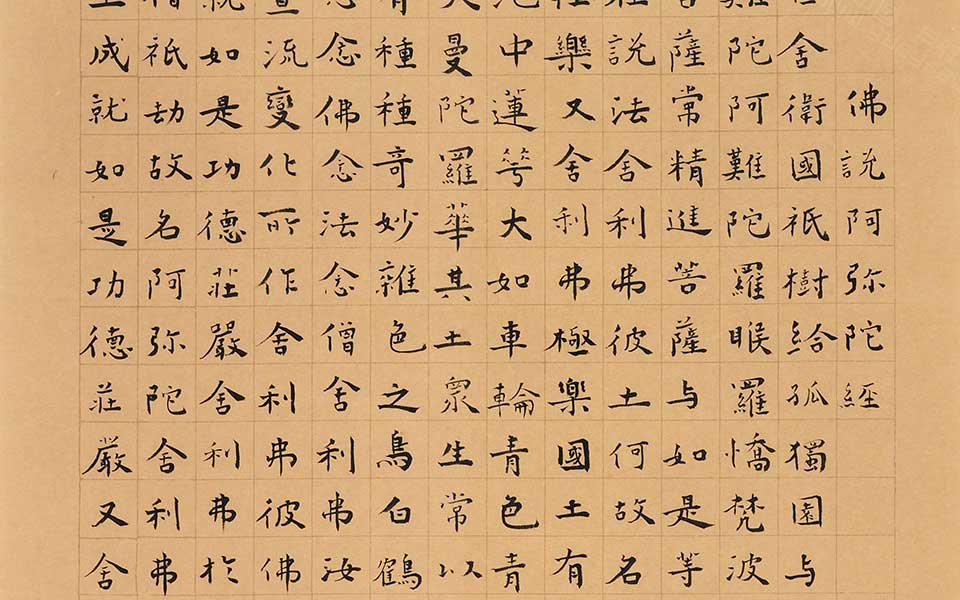 佛說阿弥陀經
舍衛國祇樹給孤獨園与
難陀阿難陀羅睺羅憍梵波
薩常精進菩薩与如是等
在說法舍利弗彼土何故名
樂又舍利弗極樂國土有
池中蓮華大如車輪青色青
天曼陀羅華其土衆生常以
有種種奇妙雜色之鳥白鶴
念念佛念法念僧舍利弗汝
宣流變化所作舍利弗彼佛
就如是功德莊嚴舍利弗於
僧祇劫故名阿弥陀舍利弗
土成就如是功德莊嚴又舍